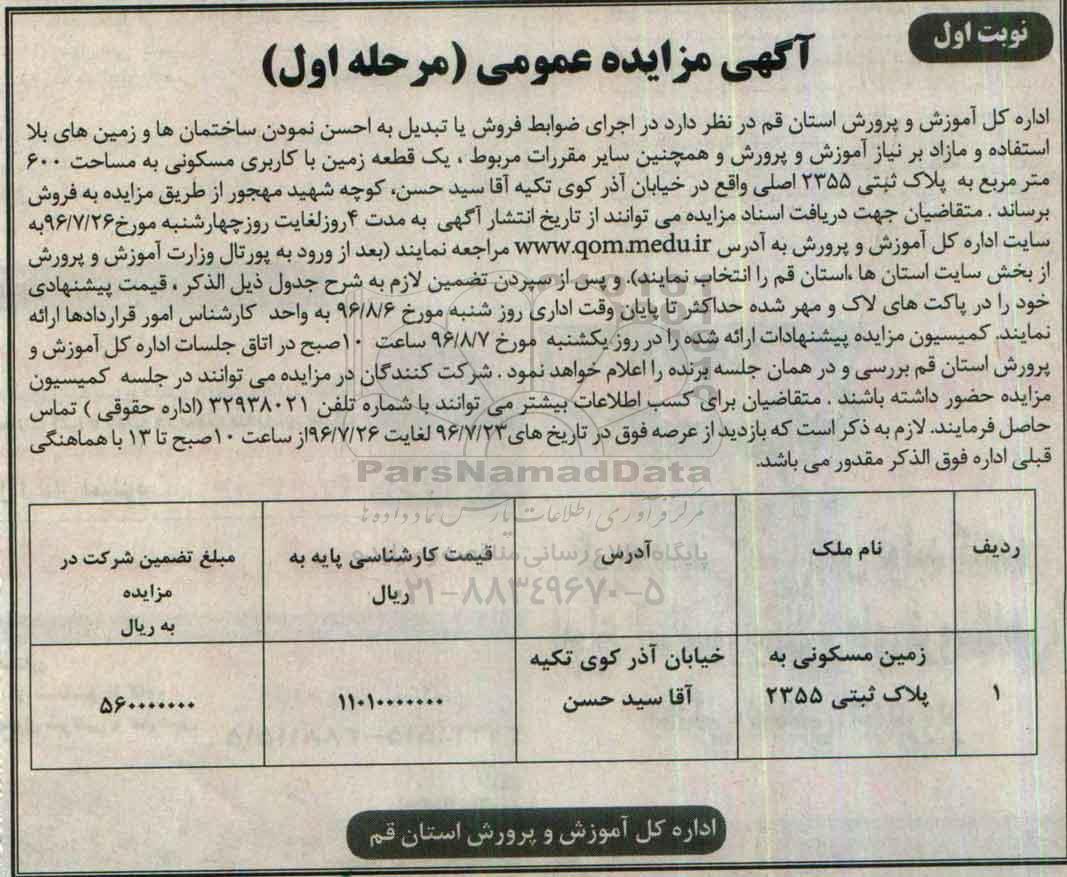 نوبت اول
آگهی مزایده عمومی (مرحله اول)
اداره کل آموزش و پرورش استان قم در نظر دارد در اجرای ضوابط فروش یا تبدیل به احسن نمودن ساختمان ها و زمین های بلا
استفاده و مازاد بر نیاز آموزش و پرورش و همچنین سایر مقررات مربوط ، یک قطعه زمین با کاربری مسکونی به مساحت ۶۰۰
متر مربع به پلاک ثبتی ۲۳۵۵ اصلی واقع در خیابان آذر کوی تکیه آقا سید حسن، کوچه شهید مهجور از طریق مزایده به فروش
برساند . متقاضیان جهت دریافت اسناد مزایده می توانند از تاریخ انتشار آگهی به مدت ۴روزلغایت روزچهارشنبه مورخ۹۶/۷/۲۶به
سایت اداره کل آموزش و پرورش به آدرس www.qom.medu.ir مراجعه نمایند (بعد از ورود به پورتال وزارت آموزش و پرورش
از بخش سایت استان ها ،استان قم را انتخاب نمایند). و پس از سپردن تضمین لازم به شرح جدول ذیل الذکر ، قیمت پیشنهادی
خود را در پاکت های لاک و مهر شده حداکثر تا پایان وقت اداری روز شنبه مورخ ۹۶/۸/۶ به واحد کارشناس امور قراردادها ارائه
نمایند. کمیسیون مزایده پیشنهادات ارائه شده را در روز یکشنبه مورخ ۹۶/۸/۷ ساعت ۱۰صبح در اتاق جلسات اداره کل آموزش و
پرورش استان قم بررسی و در همان جلسه برنده را اعلام خواهد نمود . شرکت کنندگان در مزایده می توانند در جلسه کمیسیون
مزایده حضور داشته باشند . متقاضیان برای کسب اطلاعات بیشتر می توانند با شماره تلفن ۳۲۹۳۸۰۲۱ (اداره حقوقی ) تماس
حاصل فرمایند. لازم به ذکر است که بازدید از عرصه فوق در تاریخ های۹۶/۷/۲۳ لغایت ۹۶/۷/۲۶از ساعت ۱۰صبح تا ۱۳ با هماهنگی
قبلی اداره فوق الذکر مقدور می باشد.
ParsNamadData
مرکز فرآوری اطلاعات پارس نماد داده ها
۰۲۱-۸۸۳۴۹۶۷۰-۵
ردیف نام ملک آدرس قیمت کارشناسی پایه به ریال مبلغ تضمین شرکت در مزایده به ریال
۱ زمین مسکونی به پلاک ثبتی ۲۳۵۵ خیابان آذر کوی تکیه آقا سید حسن ۱۱۰۱۰۰۰۰۰۰۰ ۵۶۰۰۰۰۰۰۰
اداره کل آموزش و پرورش استان قم